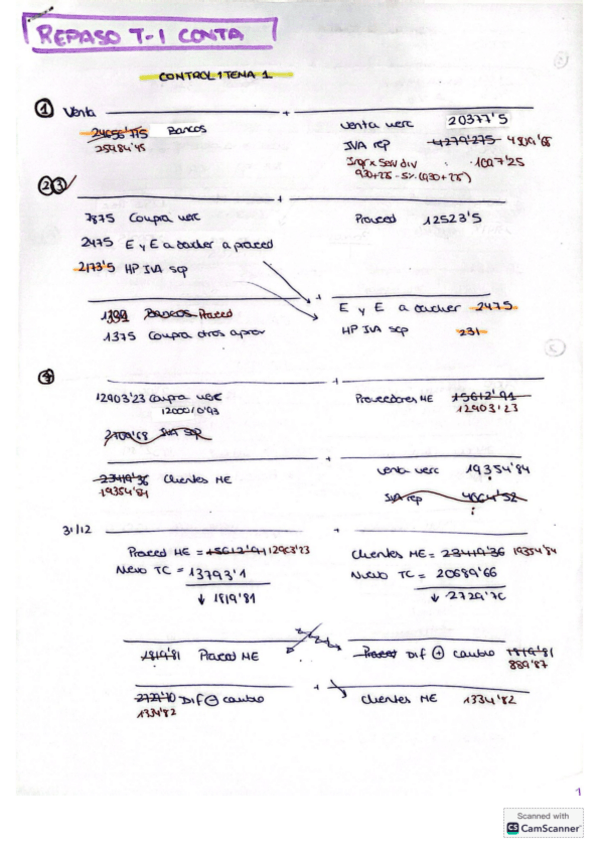 REPASO T-1 CONTA
CONTROL 1 TEMA 1
1 Venta
24656'775 Bancos
25484'45
Venta merc 20377'5
IVA rep 4279'275
Ingr x Serv div 1007'25
2 3
7875 Compra merc
Proveed 12523'5
2475 E y E a devolver a proveed
2173'5 HP IVA sop
Bancos Proveed
1375 Compra otros aprov
E y E a devolver 2475
HP IVA sop 231
4
12903'23 Compra merc
12000/0'93
IVA sop
Proveedores ME 15612'91
12903'23
23419'36 Clientes ME
19354'84
Venta merc 19354'84
IVA rep 4064'52
31/12
Proveed ME = 15612'91 12903'23
Nuevo TC = 13793'1
↓ 1819'81
Clientes ME = 23419'36 19354'84
Nuevo TC = 20689'66
↓ 2729'70
1819'81 Proveed ME
Proveed Dif + cambio 1819'81
889'87
2729'70 Dif - cambio
1334'82
Clientes ME 1334'82
1
Scanned with
CS CamScanner